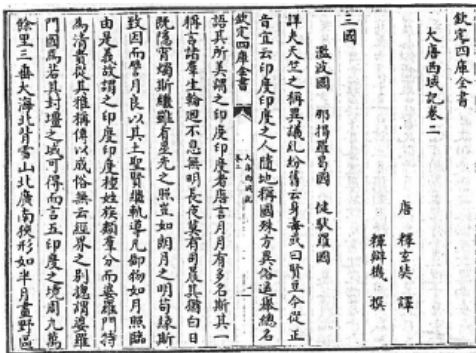 欽定四庫全書
大唐西域記卷二
唐 釋玄奘 譯
釋辯機 撰
三國
濫波國 那揭羅曷國 健馱羅國
詳夫天竺之稱異議糺紛舊云身毒或曰賢豆今從正
音宜云印度印度之人隨地稱國殊方異俗遥舉總名
語其所美謂之印度印度者唐言月月有多名斯其一
欽定四庫全書
大唐西域記
卷二
稱言諸羣生輪迴不息無明長夜莫有司晨其猶白日
既隱宵燭斯繼雖有星光之照豈如朗月之明茍緣斯
致因而譬月良以其土聖賢繼軌導凡御物如月照臨
由是義故謂之印度印度種姓族類羣分而婆羅門特
為清貴從其雅稱傳以成俗無云經界之別總謂婆羅
門國焉若其封疆之域可得而言五印度之境周九萬
餘里三垂大海北背雪山北廣南狹形如半月畫野區